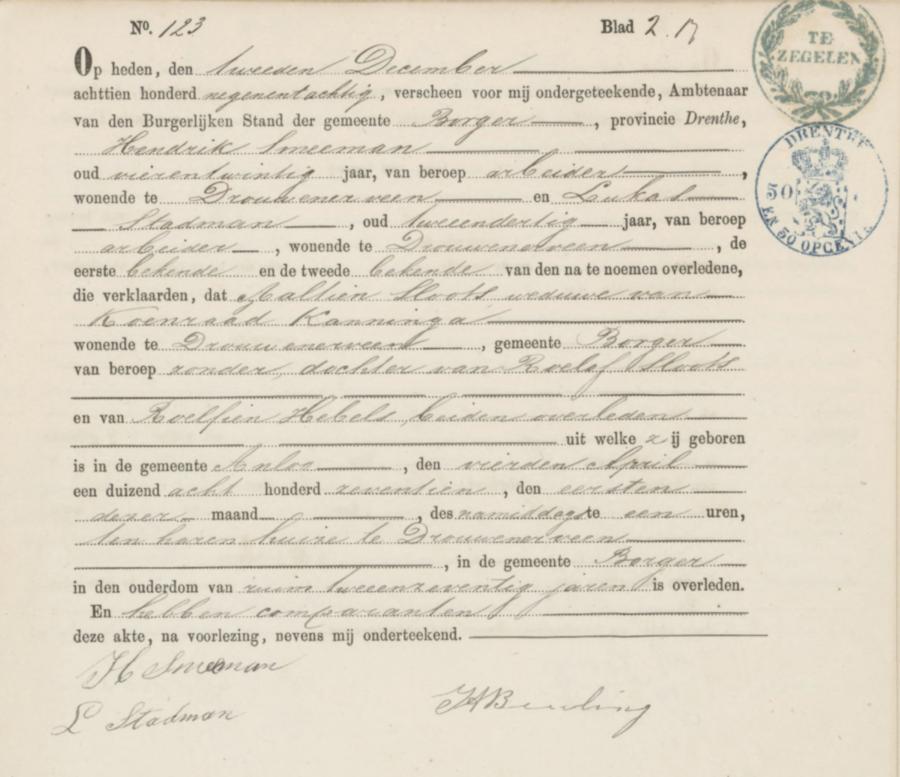 No. 123 Blad 2.
Op heden, den tweeden December
achttien honderd negenentachtig, verscheen voor mij ondergeteekende, Ambtenaar
van den Burgerlijken Stand der gemeente Borger, provincie Drenthe,
Hendrik Smeeman
oud vierentwintig jaar, van beroep arbeider,
wonende te Drouwenerveen en Lukas
Stadman, oud tweeendertig jaar, van beroep
arbeider, wonende te Drouwenerveen, de
eerste bekende en de tweede bekende van den na te noemen overledene,
die verklaarden, dat Aaltien Sloots weduwe van
Koenraad Kanninga
wonende te Drouwenerveen, gemeente Borger
van beroep zonder, dochter van Roelof Sloots
en van Roelfien Hebels, beiden overleden
uit welke zij geboren
is in de gemeente Anloo, den vierden April
een duizend acht honderd zeventien, den eersten
dezer maand, des namiddags te een uren,
ten haren huize te Drouwenerveen
, in de gemeente Borger
in den ouderdom van ruim tweeenzeventig jaren is overleden.
En hebben comparanten
deze akte, na voorlezing, nevens mij onderteekend.
H Smeeman
L Stadman
TE
ZEGELEN
DRENTHE
50
EN 50 OPCENT.